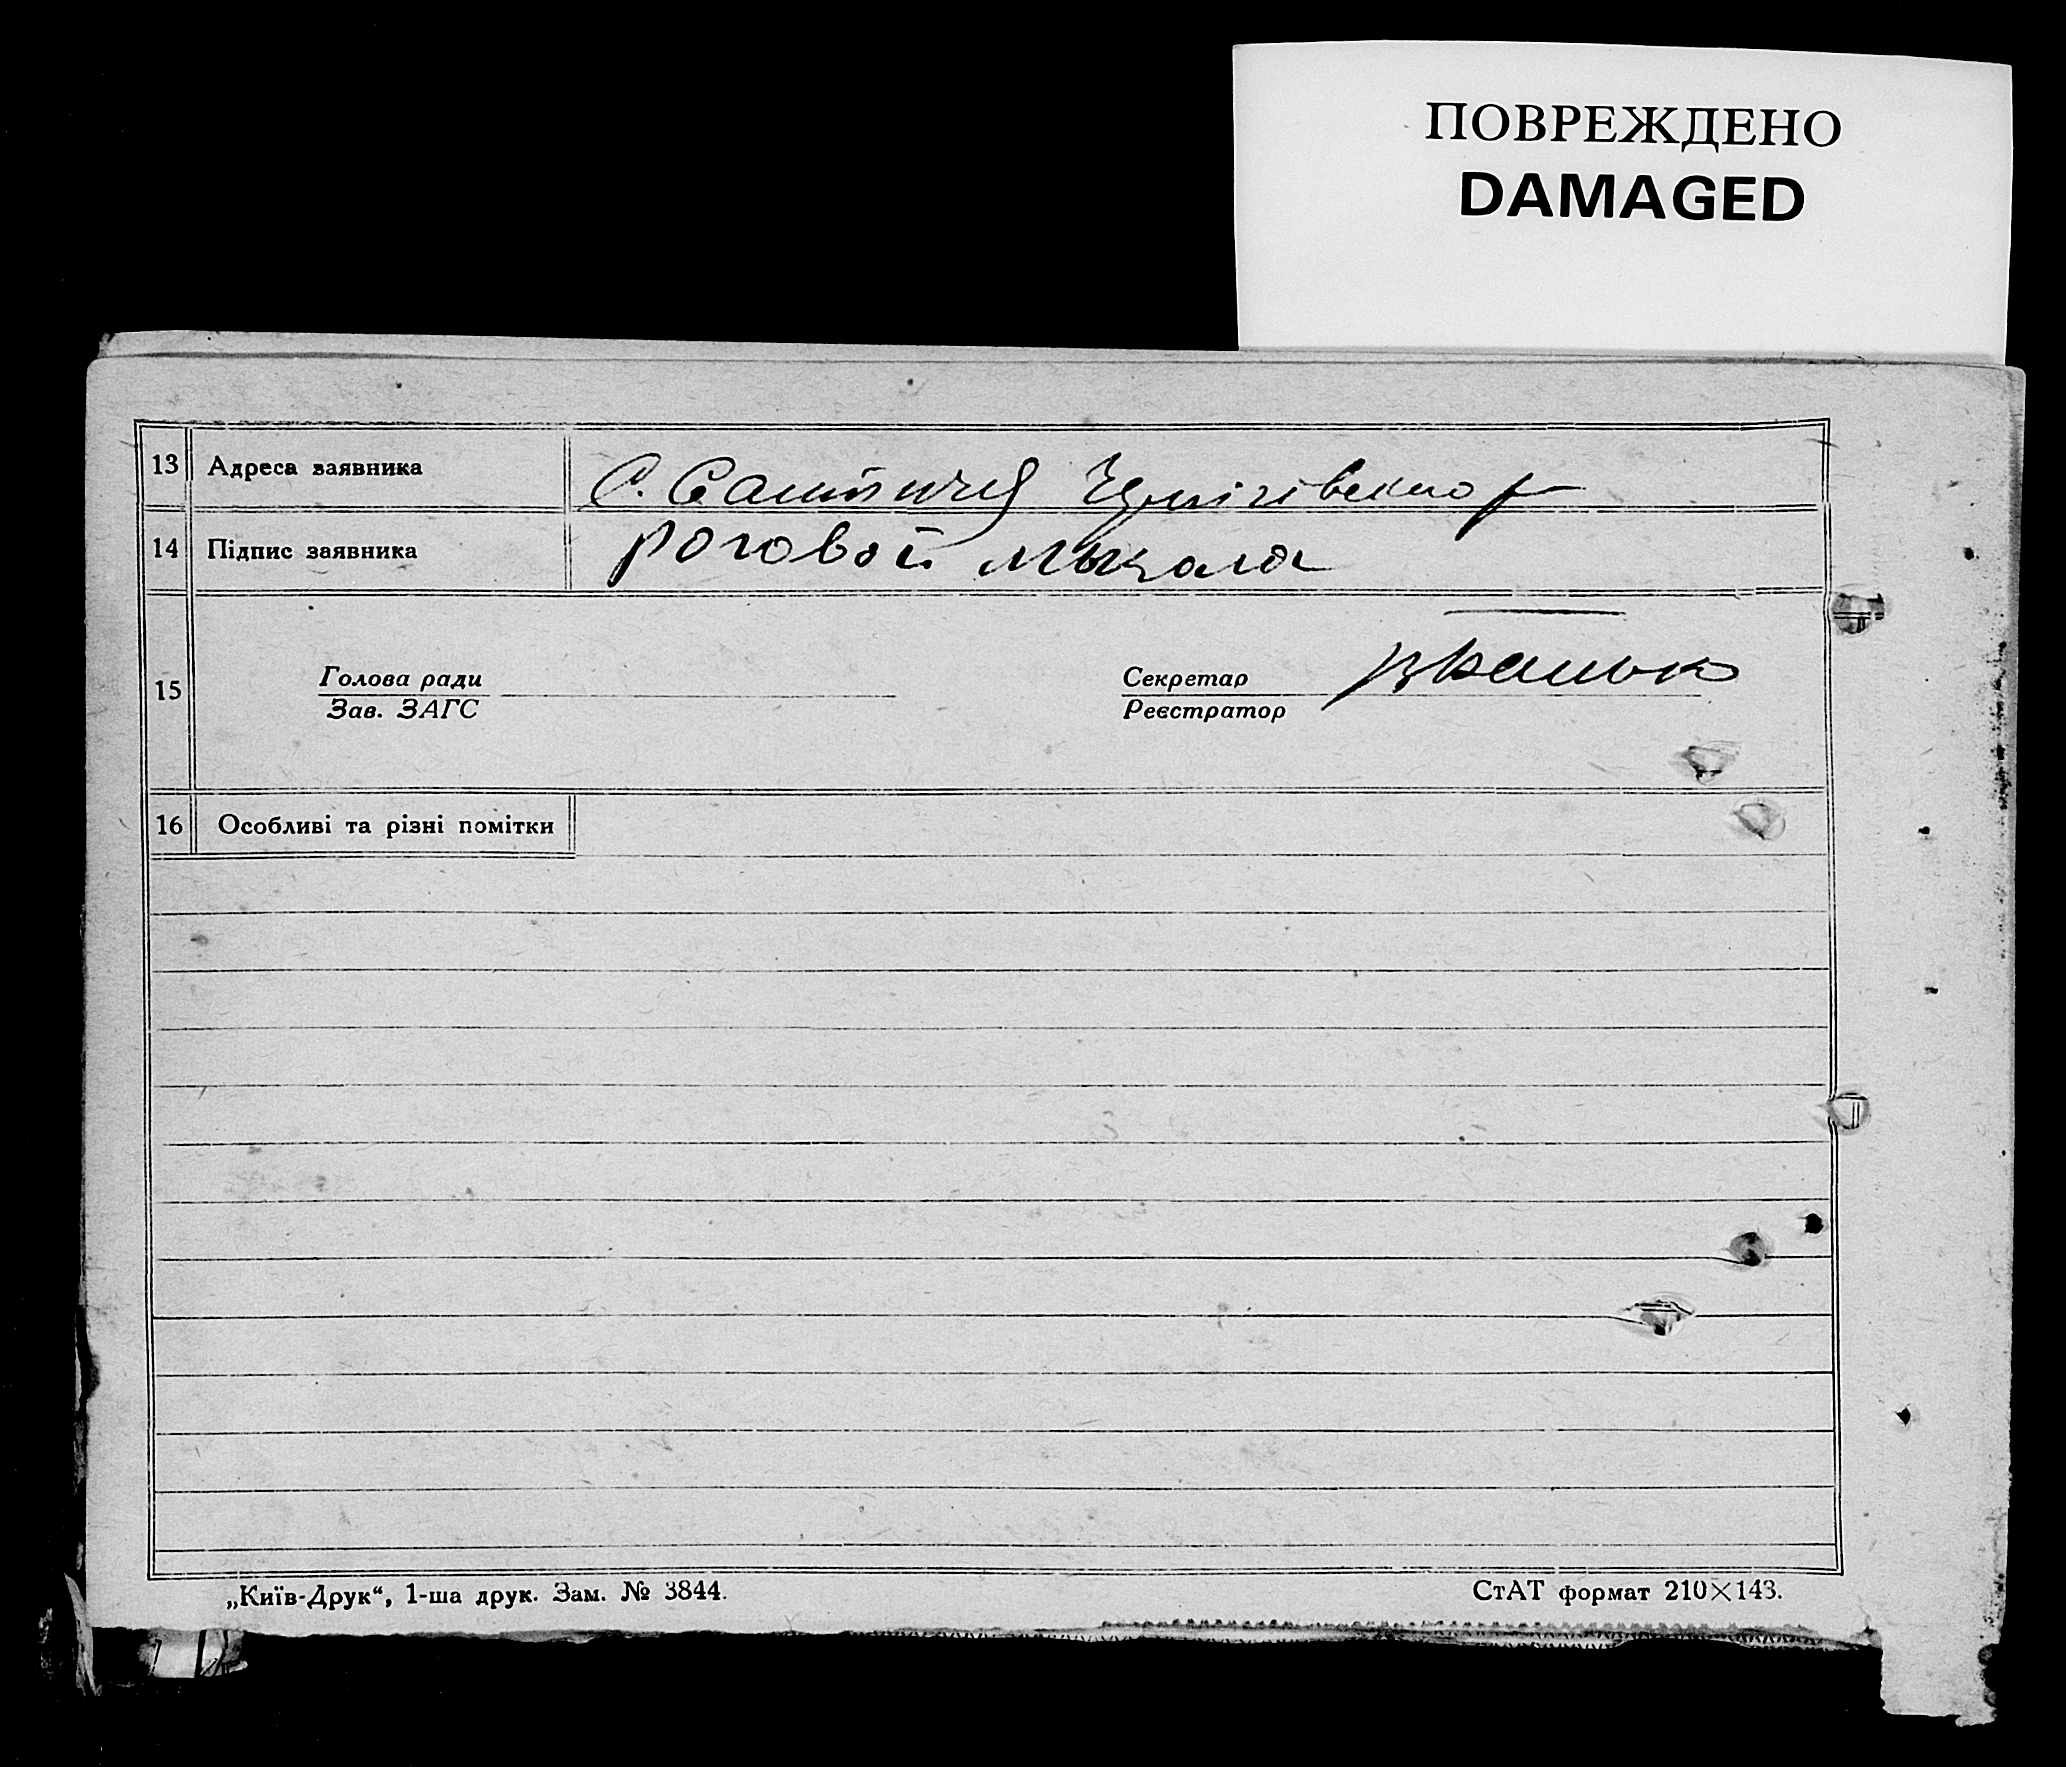 ПОВРЕЖДЕНО
DAMAGED
13 Адреса заявника С.
14 Підпис заявника Роговой Мыкола
15 Голова ради Секретар
Зав. ЗАГС Реєстратор
16 Особливі та різні помітки
„Київ-Друк“, 1-ша друк. Зам. № 3844. СтАТ формат 210×143.